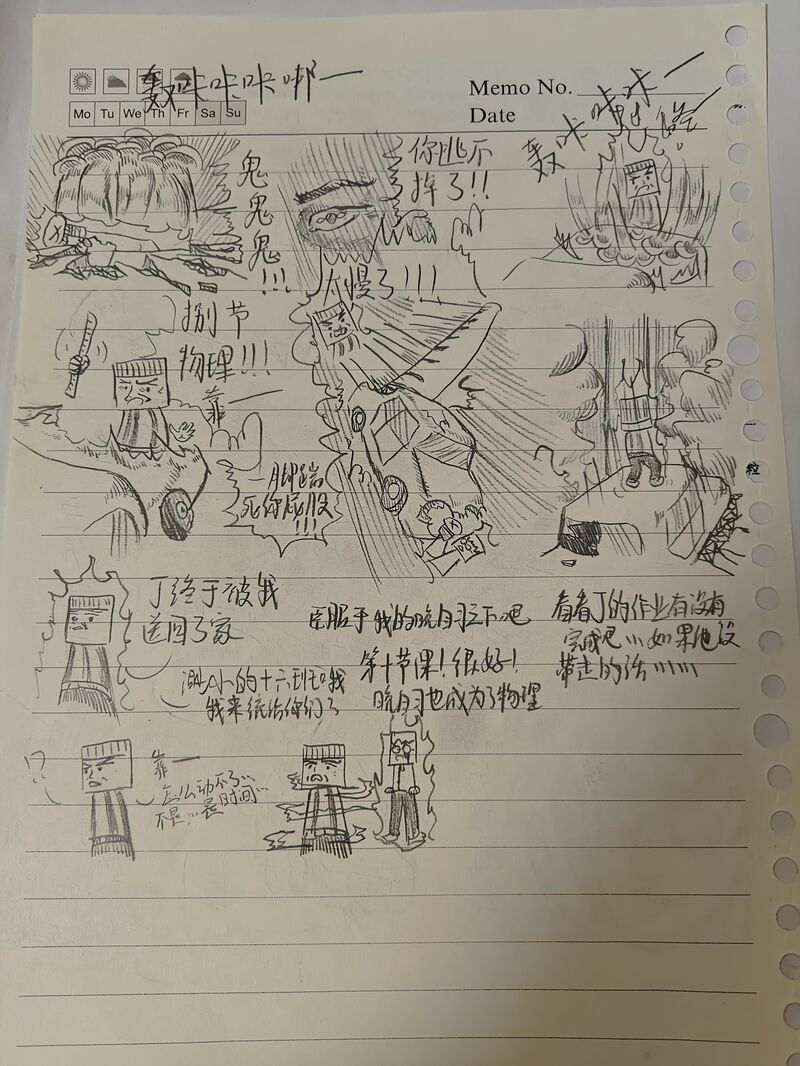 轰咔咔咔啷一
Memo No.
Date
Mo Tu We Th Fr Sa Su
轰咔咔咔一
鬼鬼鬼!!!
你逃不
掉了!!
太慢了!!!
捌节
物理!!!
靠一
一脚踹
死你屁股
!!!
粒
丁终于被我
送回了家
渺小的十六班
我来统治你们了
臣服于我的晚自习之下吧
第十节课!很好!
晚自习也成为了物理
看看丁的作业有没有
完成吧...如果他没
带走的话......
!?
靠一
怎么动不了...
不是...是时间...